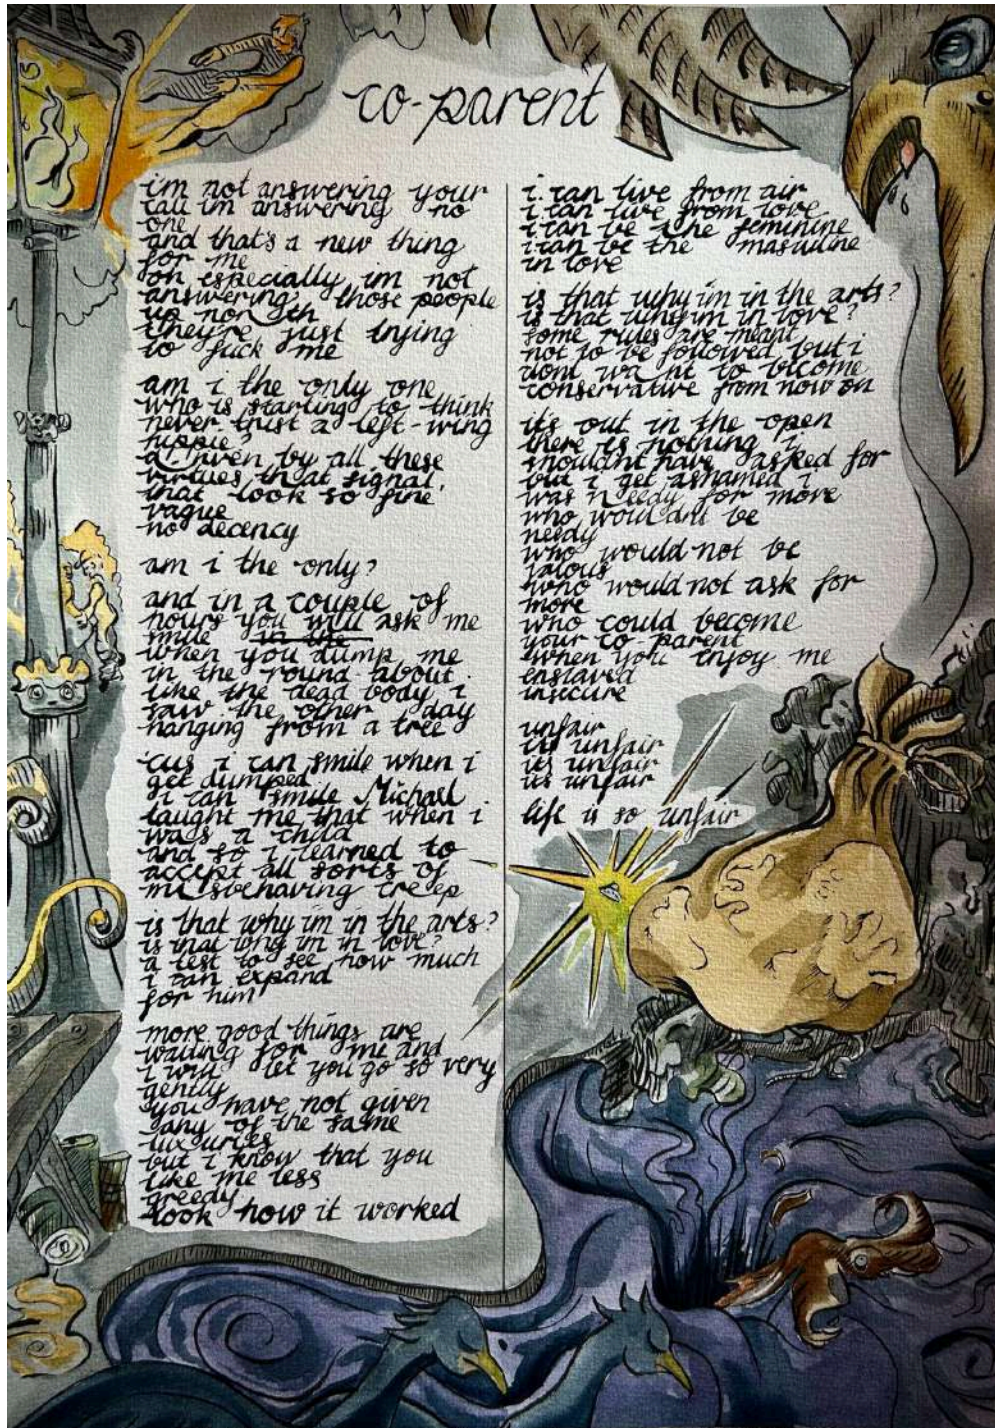 co-parent
im not answering your
call im answering no
one
and that's a new thing
for me
oh especially im not
answering those people
up north
they're just trying
to fuck me
am i the only one
who is starting to think
never trust a left-wing
hippie?
driven by all these
virtues that signal,
that look so fine
vague
no decency
am i the only?
and in a couple of
hours you will ask me
smile in the
when you dump me
in the round-about
like the dead body i
saw the other day
hanging from a tree
'cus i can smile when i
get dumped
i can smile Michael
taught me that when i
was a child
and so i learned to
accept all sorts of
misbehaving creep
is that why im in the arts?
is that why im in love?
a test to see how much
i can expand
for him
more good things are
waiting for me and
i will let you go so very
gently
you have not given
any of the same
luxuries
but i know that you
like me less
greedy
look how it worked
i can live from air
i can live from love
i can be the feminine
i can be the masculine
in love
is that why im in the arts?
is that why im in love?
some rules are meant
not to be followed but i
dont wa nt to become
conservative from now on
its out in the open
there is nothing i
shouldnt have asked for
but i get ashamed i
was needy for more
who wouldnt be
needy
who would not be
jalous
who would not ask for
more
who could become
your co-parent
when you enjoy me
enslaved
insecure
unfair
its unfair
its unfair
its unfair
life is so unfair